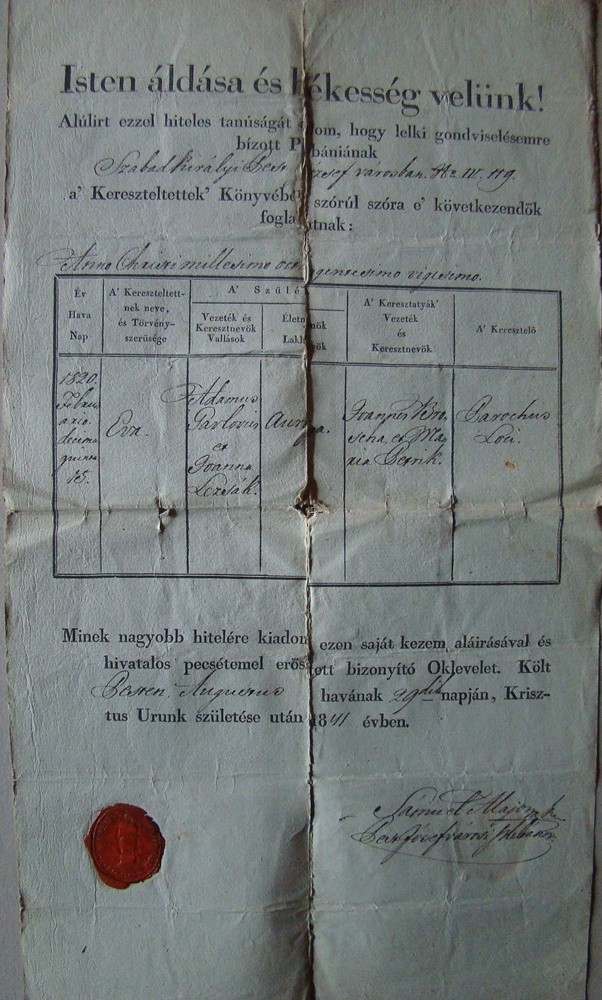 Isten áldása és békesség velünk!
Alúlirt ezzel hiteles tanúságát adom, hogy lelki gondviselésemre
bízott Plébániának
Szabad Királyi Pest József városban. III. 119.
a' Kereszteltettek' Könyvében szórúl szóra e' következendők
foglaltatnak:
Anno Christi millesimo octingentesimo vigesimo.
Év
Hava
Nap
A' Kereszteltett-
nek neve,
és Törvény-
szerüsége
A' Szülé
Vezeték és
Keresztnevök
Vallások
Életnemök
Lakhelyök
A' Keresztatyák'
Vezeték
és
Keresztnevök
A' Keresztelő
1820.
Febru
ario
decima
quinta
15.
Eva.
Adamus
Pavlovits
et
Joanna
Lezsák.
Auriga.
Joannes
et Ma
ria
Parochus
Loci.
Minek nagyobb hitelére kiadom ezen saját kezem aláirásával és
hivatalos pecsétemel erősitett bizonyító Oklevelet. Költ
Pesten Augustus havának 29dik napján, Krisz-
tus Urunk születése után 1841 évben.
Samuel
Pest Józsefvárosi plébános